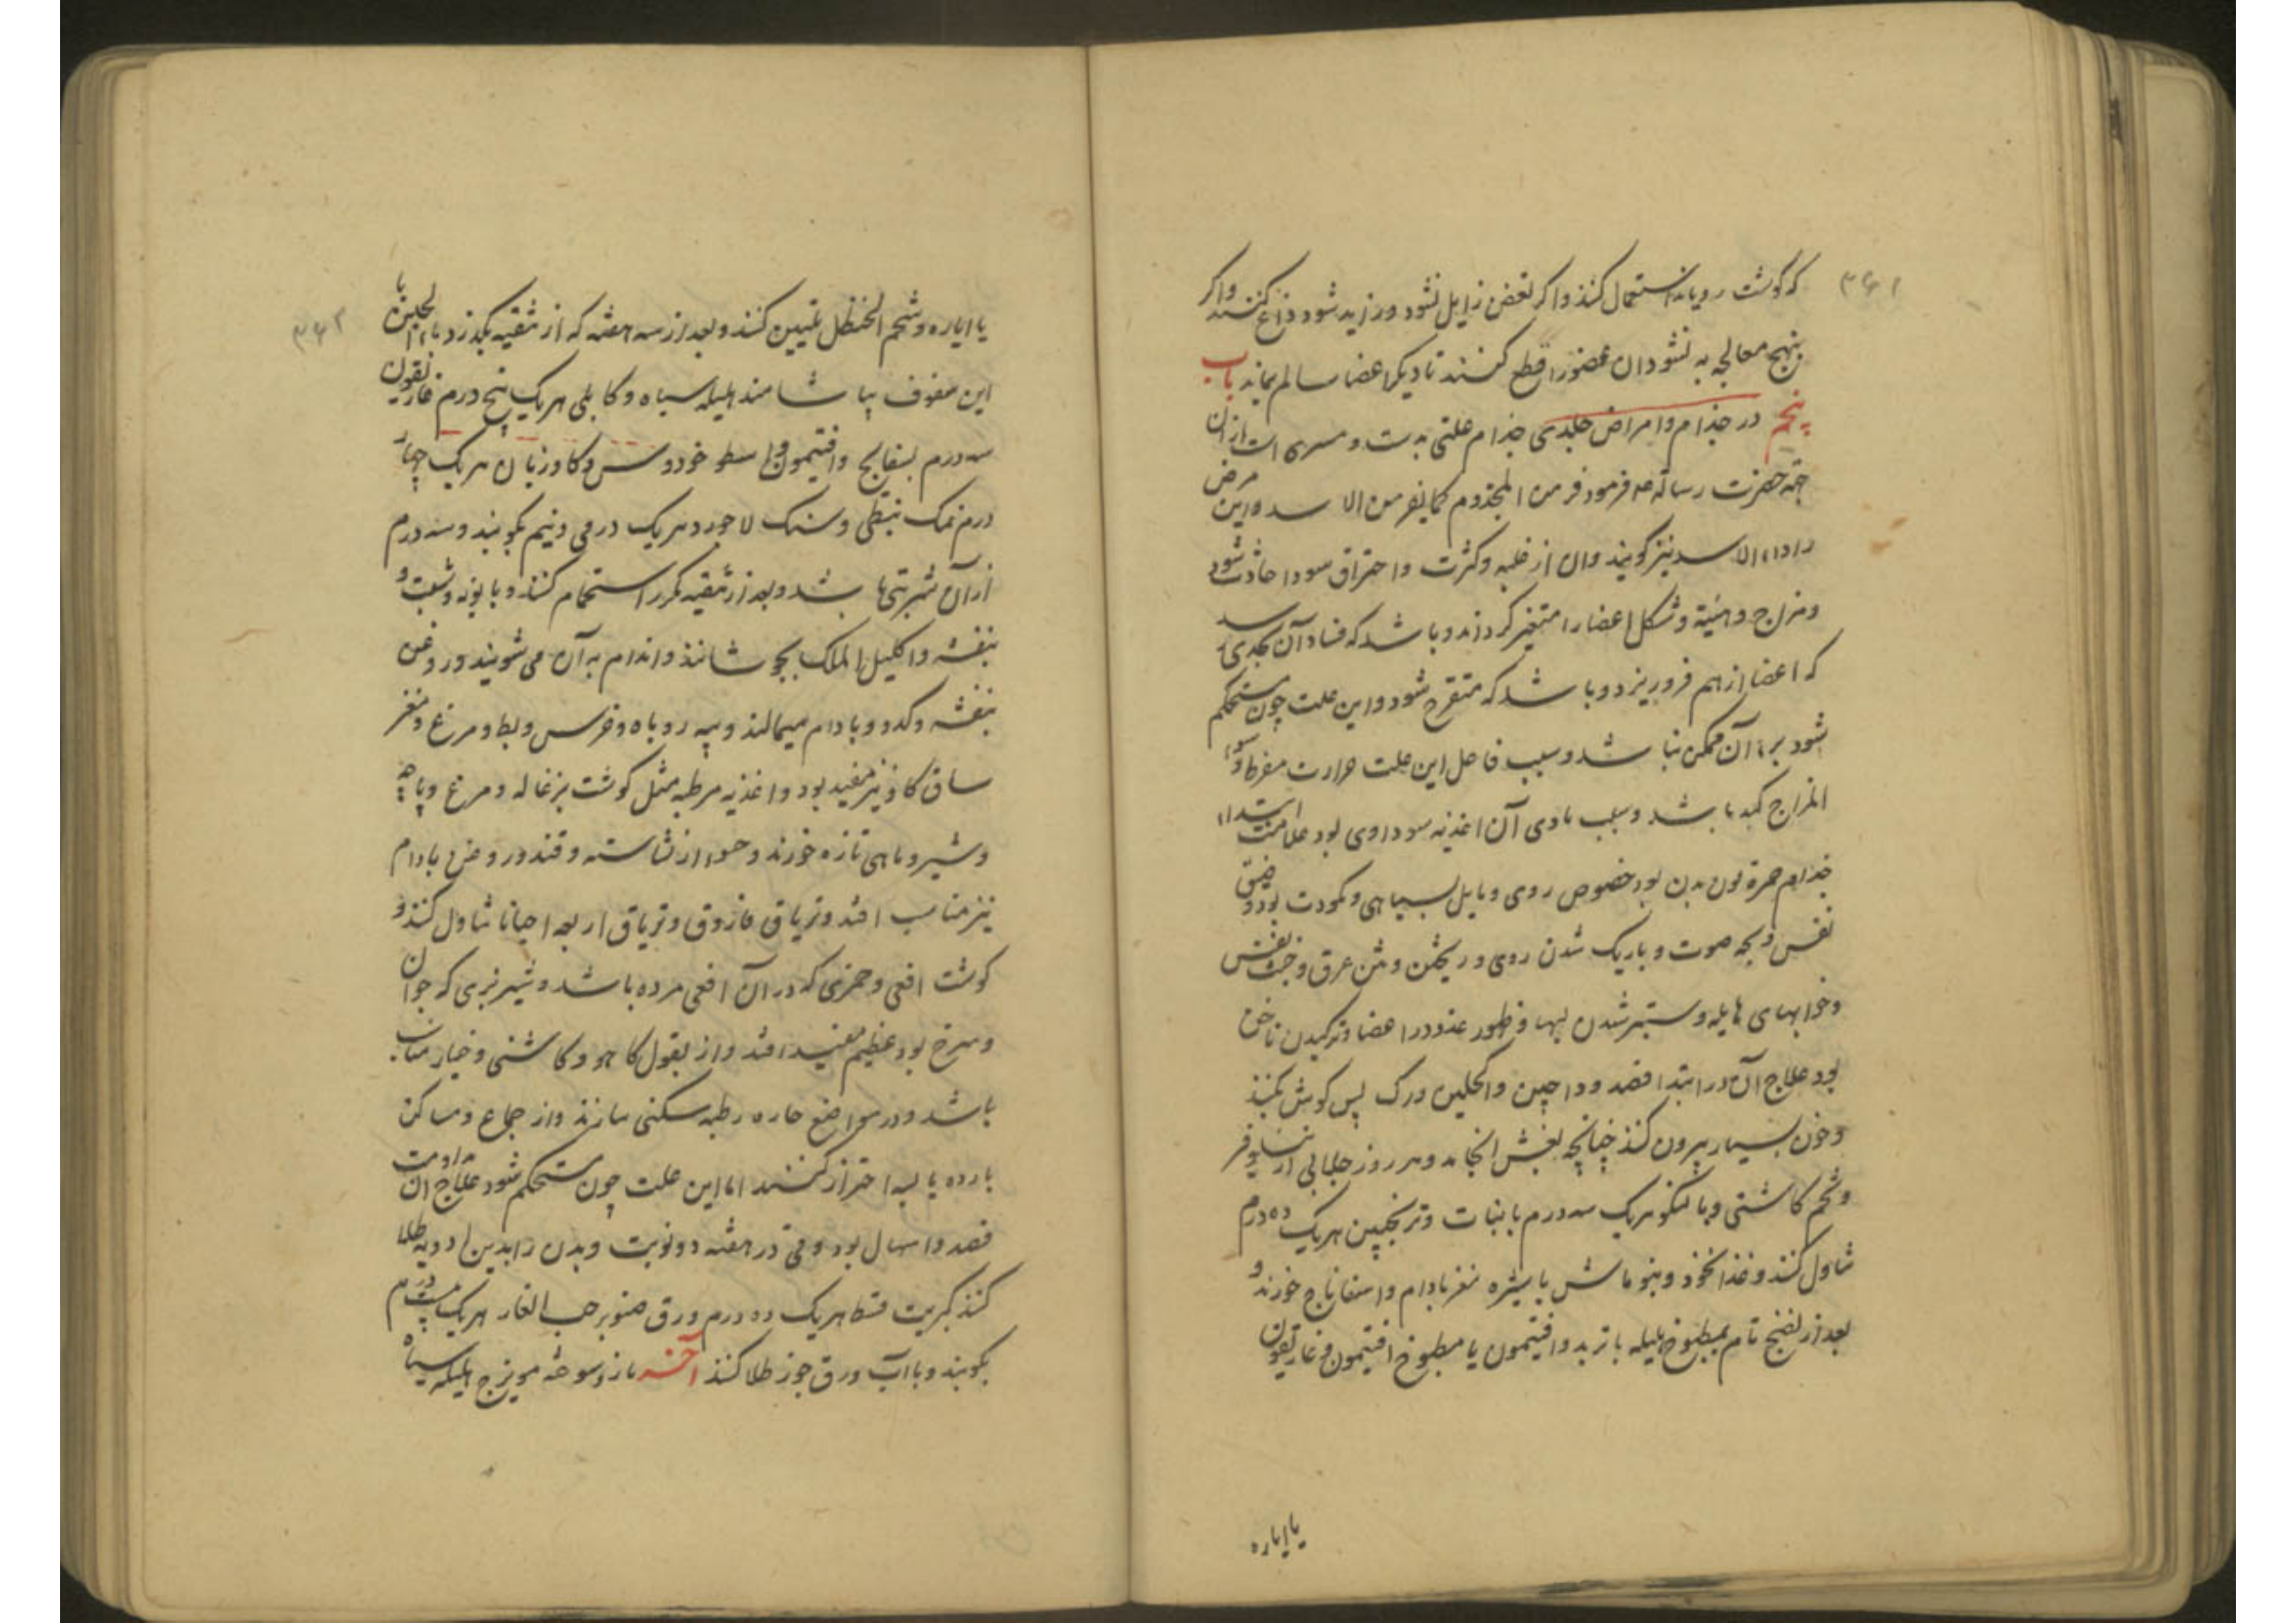 ۳۶۱
که گوشت رویاند استعمال کنند و اکر بعض زایل نشود و زاید شود داغ کنند و اکر
بهیچ معالجه به نشود ان عضو را قطع کنند تا دیکر اعضا سالم بماند باب
پنجم در جذام و امراض جلدی جذام علتی بدست و مسری است ازان
جهة حضرت رساله ۴ فرمود فر من المجذوم کما یفر من الاسد و این مرض
را داء الاسد نیز کویند و ان از غلبه و کثرت و احتراق سودا حادث شود
و مزاج و هیئة و شکل اعضا را متغیر کرداند و باشد که فساد آن بحدی رسد
که اعضا از هم فرو ریزد و باشد که متقرح شود و این علت چون مستحکم
شود برء آن ممکن نباشد و سبب فاعل این علت حرارت مفرط و سوء
المزاج کبد باشد و سبب مادی آن اغذیه سوداوی بود علامت ابتداء
جذام حمرة لون بدن بود خصوص روی و مایل بسیاهی و کمودت بود و ضیق
نفس و بحه صوت و باریک شدن روی و ریختن و نتن عرق و خبث نفس
و خوابهای هایله و ستبر شدن لبها و ظهور غدد در اعضا و ترکیدن ناخن
بود علاج آن در ابتدا فصد وداجین و اکحلین و رک پس کوش بکنند
و خون بسیار بیرون کنند چنانچه بغش انجامد و هر روز جلابی از نیلوفر
و تخم کاشنی و بالنکو هریک سه درم با نبات و ترنجبین هریک ده درم
تناول کنند و غذا نخود و بنو ماش با شیره مغز بادام و اسفاناج خورند و
بعد از نضج تام بمطبوخ هلیله با تربد و افتیمون یا مطبوخ افتیمون و غاریقون
یا ایاره
۳۶۲
یا ایاره و شحم الحنظل تلیین کنند و بعد از سه هفته که از تنقیه بکذرد باء الجبن با
این سفوف بیاشامند هلیله سیاه و کابلی هریک پنج درم غاریقون
سه درم بسفایج و افتیمون و اسطوخودوس و کاوزبان هریک چهار
درم نمک نبطی و سنک لاجورد هریک درمی و نیم بکوبند و سه درم
از آن شربتی باشد و بعد از تنقیه مکرر استحمام کنند و بابونه و شبت و
بنفشه و اکلیل الملک بجوشانند و اندام به آن می شویند و روغن
بنفشه و کدو و بادام میمالند و پیه روباه و خرس و بط و مرغ و مغز
ساق کاو نیز مفید بود و اغذیه مرطبه مثل کوشت بزغاله و مرغ و پاچه
و شیر و ماهی تازه خورند و حلوا از نشاسته و قند و روغن بادام
نیز مناسب افتد و تریاق فاروق و تریاق اربعه احیانا تناول کنند و
کوشت افعی و خمری که در ان افعی مرده باشد و شیر بزی که جوان
و سرخ بود عظیم مفید افتد و از بقول کاهو و کاشنی و خیار مناسب
باشد و در مواضع حاره رطبه سکنی سازند و از جماع و مساکن
بارده یابسه احتراز کنند اما این علت چون مستحکم شود علاج ان مداومت
فصد و اسهال بود و قی در هفته دو نوبت و بدن را بدین ادویه طلا
کنند کبریت هریک ده درم ورق صنوبر حب الغار هریک بیست درم
بکوبند و با آب ورق جوز طلا کنند آخر مازو سوخته مویزج هلیله سیاه